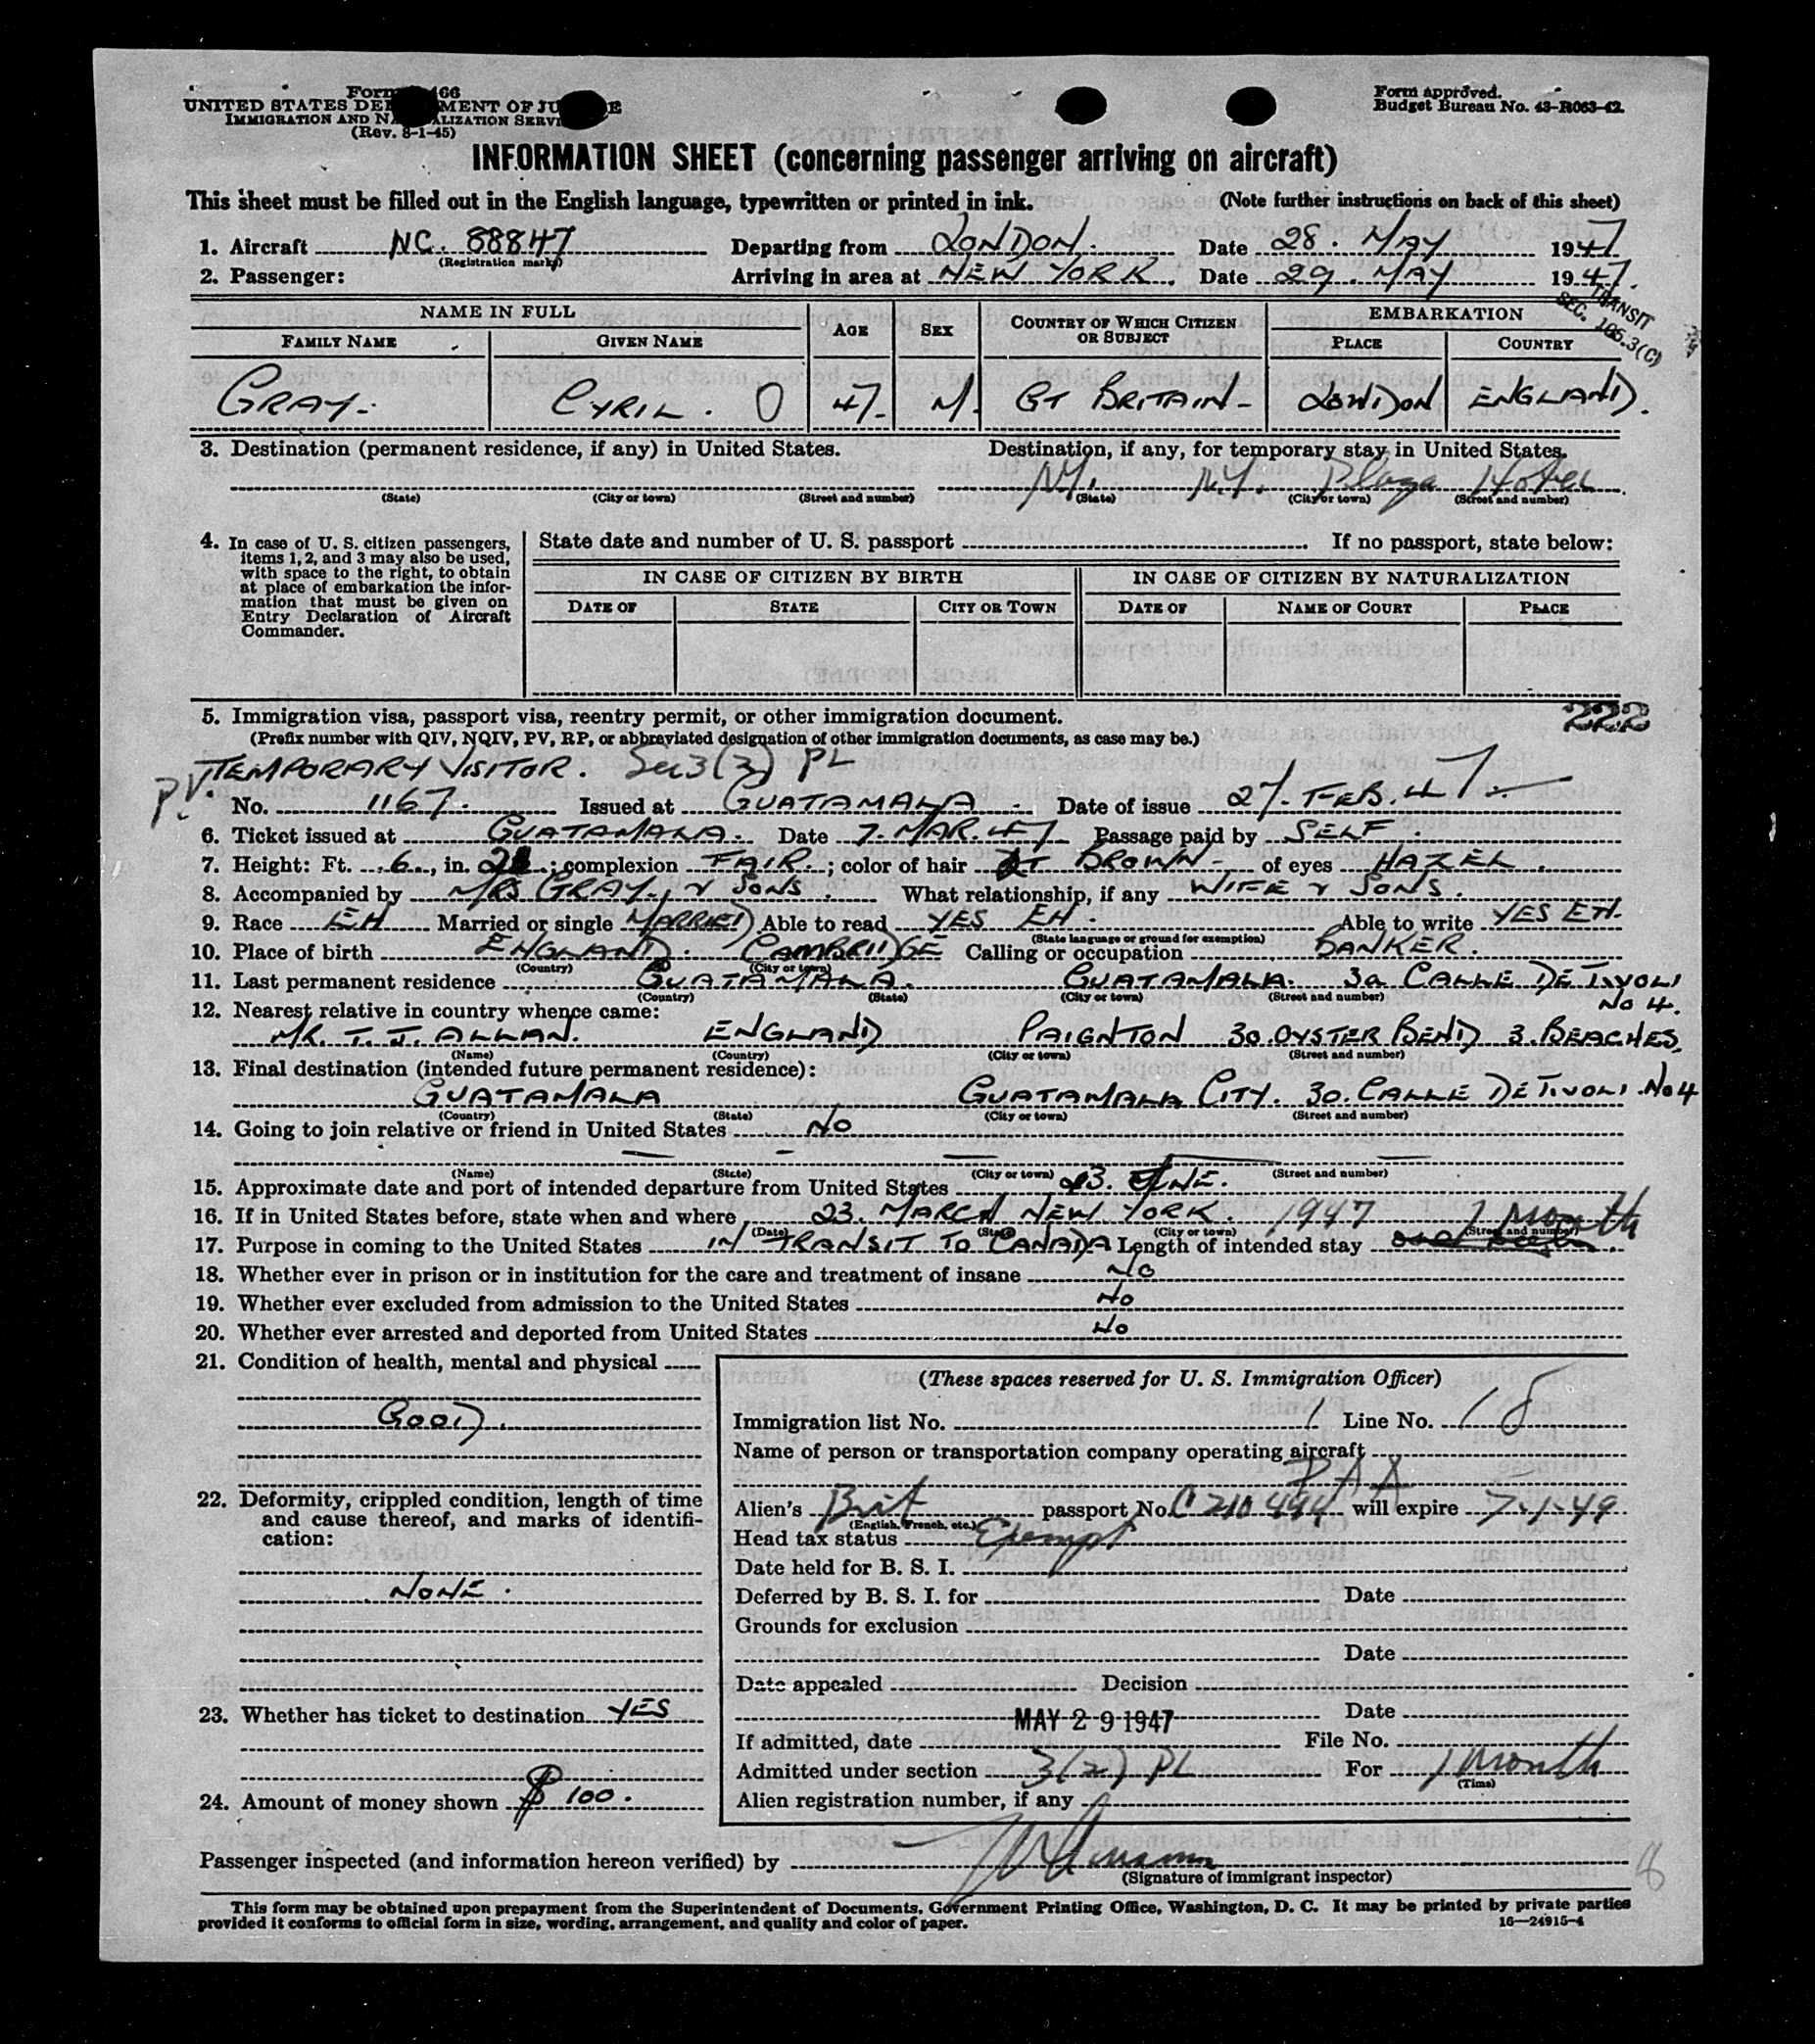 Form 466
UNITED STATES DEPARTMENT OF JUSTICE
IMMIGRATION AND NATURALIZATION SERVICE
(Rev. 8-1-45)
Form approved.
Budget Bureau No. 43-R063-42.
INFORMATION SHEET (concerning passenger arriving on aircraft)
This sheet must be filled out in the English language, typewritten or printed in ink. (Note further instructions on back of this sheet)
1. Aircraft NC. 88847 Departing from LONDON. Date 28. MAY 1947
(Registration marks)
2. Passenger: Arriving in area at NEW YORK. Date 29. MAY 1947.
TRANSIT
SEC. 105.3(C)
NAME IN FULL AGE SEX COUNTRY OF WHICH CITIZEN OR SUBJECT EMBARKATION
FAMILY NAME GIVEN NAME PLACE COUNTRY
GRAY. CYRIL. O 47. M. GT BRITAIN- LONDON ENGLAND.
3. Destination (permanent residence, if any) in United States. Destination, if any, for temporary stay in United States.
N.Y. N.Y. Plaza Hotel
(State) (City or town) (Street and number) (State) (City or town) (Street and number)
4. In case of U. S. citizen passengers,
items 1, 2, and 3 may also be used,
with space to the right, to obtain
at place of embarkation the infor-
mation that must be given on
Entry Declaration of Aircraft
Commander.
State date and number of U. S. passport If no passport, state below:
IN CASE OF CITIZEN BY BIRTH IN CASE OF CITIZEN BY NATURALIZATION
DATE OF STATE CITY OR TOWN DATE OF NAME OF COURT PLACE
5. Immigration visa, passport visa, reentry permit, or other immigration document. 222
(Prefix number with QIV, NQIV, PV, RP, or abbreviated designation of other immigration documents, as case may be.)
TEMPORARY VISITOR. Sec 3(2) PL
P.V. No. 1167. Issued at GUATAMALA. Date of issue 27. FEB. 47.
6. Ticket issued at GUATAMALA. Date 7. MAR. 47 Passage paid by SELF.
7. Height: Ft. 6., in. 2; complexion FAIR.; color of hair LT BROWN- of eyes HAZEL.
8. Accompanied by MRS GRAY., & SONS. What relationship, if any WIFE & SONS.
9. Race EH Married or single MARRIED Able to read YES EH. Able to write YES EH.
(State language or ground for exemption)
10. Place of birth ENGLAND. CAMBRIDGE Calling or occupation BANKER.
(Country) (City or town)
11. Last permanent residence GUATAMALA. GUATAMALA. 3a CALLE DE TIVOLI No 4.
(Country) (State) (City or town) (Street and number)
12. Nearest relative in country whence came:
MR. T. J. ALLAN. ENGLAND PAIGNTON 30. OYSTER BEND 3. BEACHES.
(Name) (Country) (City or town) (Street and number)
13. Final destination (intended future permanent residence):
GUATAMALA GUATAMALA CITY. 3a. CALLE DE TIVOLI. No 4
(Country) (State) (City or town) (Street and number)
14. Going to join relative or friend in United States No
(Name) (State) (City or town) (Street and number)
15. Approximate date and port of intended departure from United States 23. JUNE.
16. If in United States before, state when and where 23. MARCH NEW YORK. 1947
(Date) (State) (City or town) (Street and number)
17. Purpose in coming to the United States IN TRANSIT TO CANADA Length of intended stay 1 Month
18. Whether ever in prison or in institution for the care and treatment of insane No
19. Whether ever excluded from admission to the United States No
20. Whether ever arrested and deported from United States No
21. Condition of health, mental and physical
GOOD.
22. Deformity, crippled condition, length of time
and cause thereof, and marks of identifi-
cation:
NONE.
23. Whether has ticket to destination YES
24. Amount of money shown $ 100.
(These spaces reserved for U. S. Immigration Officer)
Immigration list No. 1 Line No. 18
Name of person or transportation company operating aircraft
PAA
Alien's Brit passport No. C 210494 will expire 7-1-49
(English, French, etc.)
Head tax status Exempt
Date held for B. S. I.
Deferred by B. S. I. for Date
Grounds for exclusion
Date
Date appealed Decision
Date
MAY 29 1947
If admitted, date File No.
Admitted under section 3(2) PL For 1 Month
(Time)
Alien registration number, if any
Passenger inspected (and information hereon verified) by
(Signature of immigrant inspector)
8
This form may be obtained upon prepayment from the Superintendent of Documents, Government Printing Office, Washington, D. C. It may be printed by private parties
provided it conforms to official form in size, wording, arrangement, and quality and color of paper. 16—24915-4